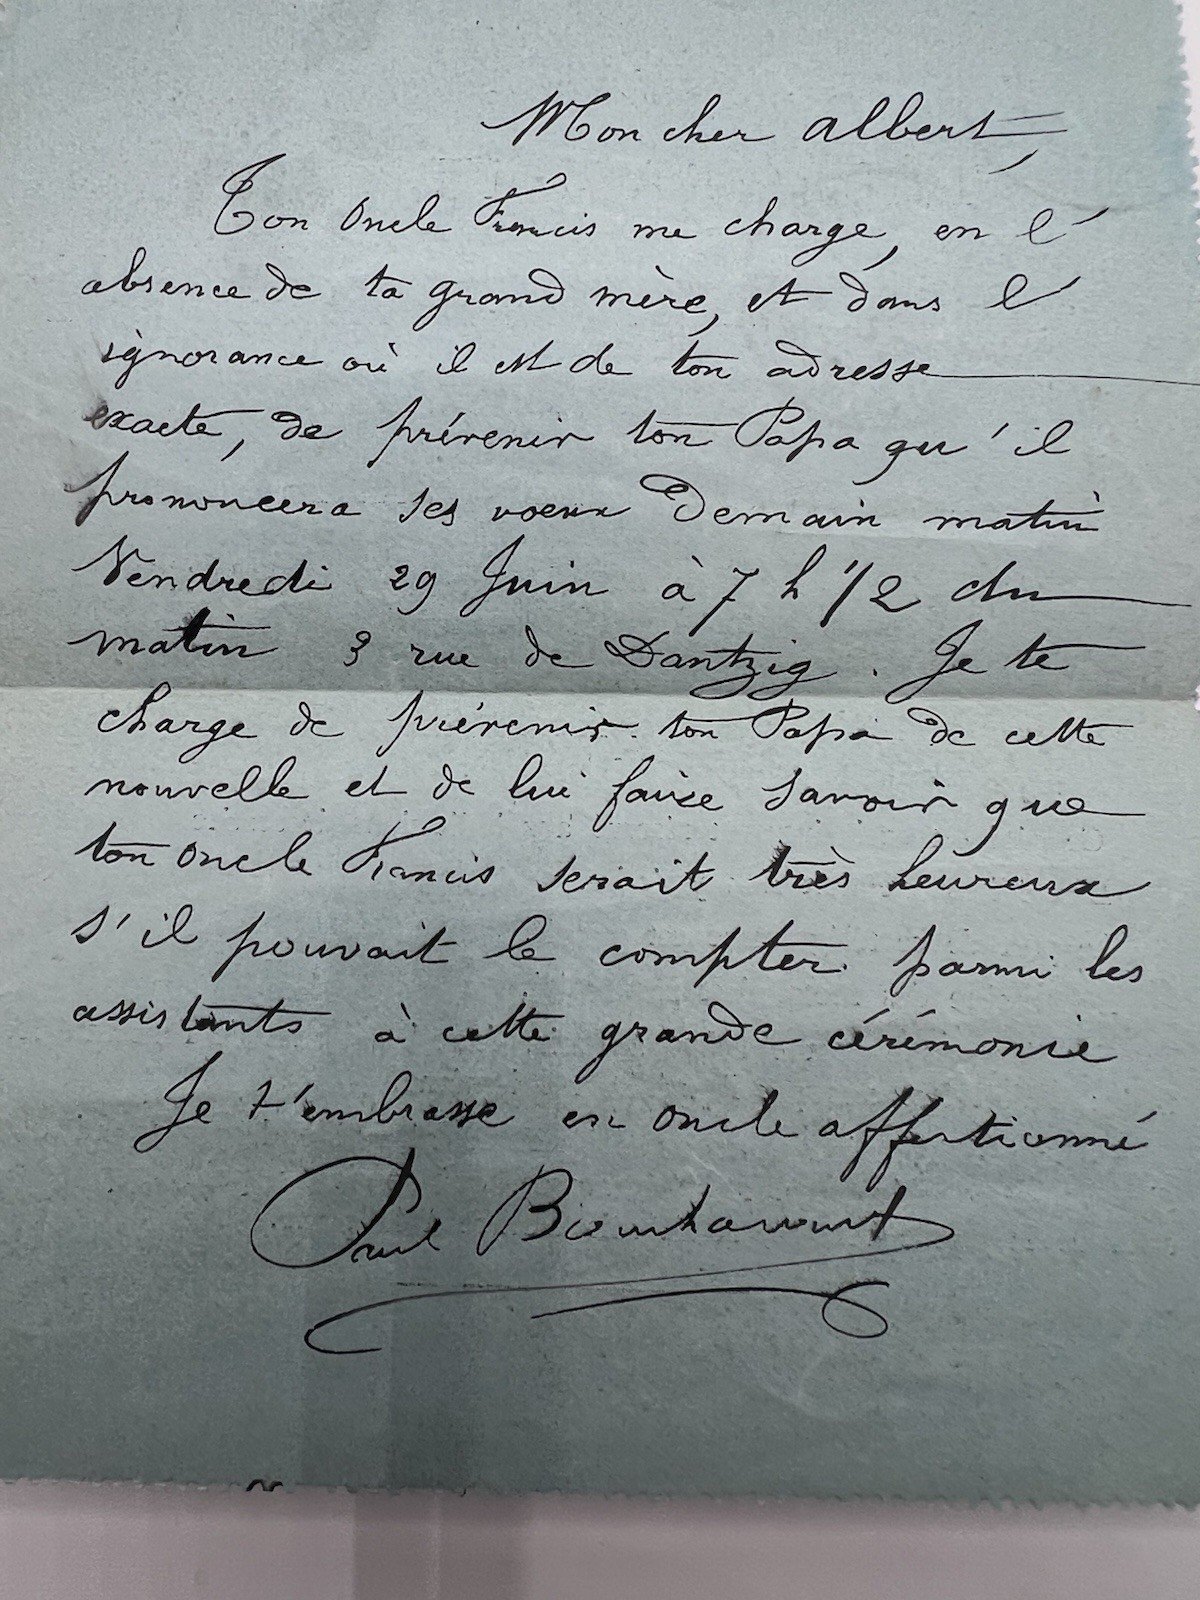 Mon cher Albert,
Ton Oncle Francis me charge, en l'
absence de ta grand mère, et dans l'
ignorance où il est de ton adresse
exacte, de prévenir ton Papa qu'il
prononcera ses voeux Demain matin
Vendredi 29 Juin à 7 h 1/2 du
matin 3 rue de Dantzig. Je te
charge de prévenir ton Papa de cette
nouvelle et de lui faire savoir que
ton Oncle Francis serait très heureux
s'il pouvait le compter parmi les
assistants à cette grande cérémonie
Je t'embrasse en Oncle affectionné
Paul